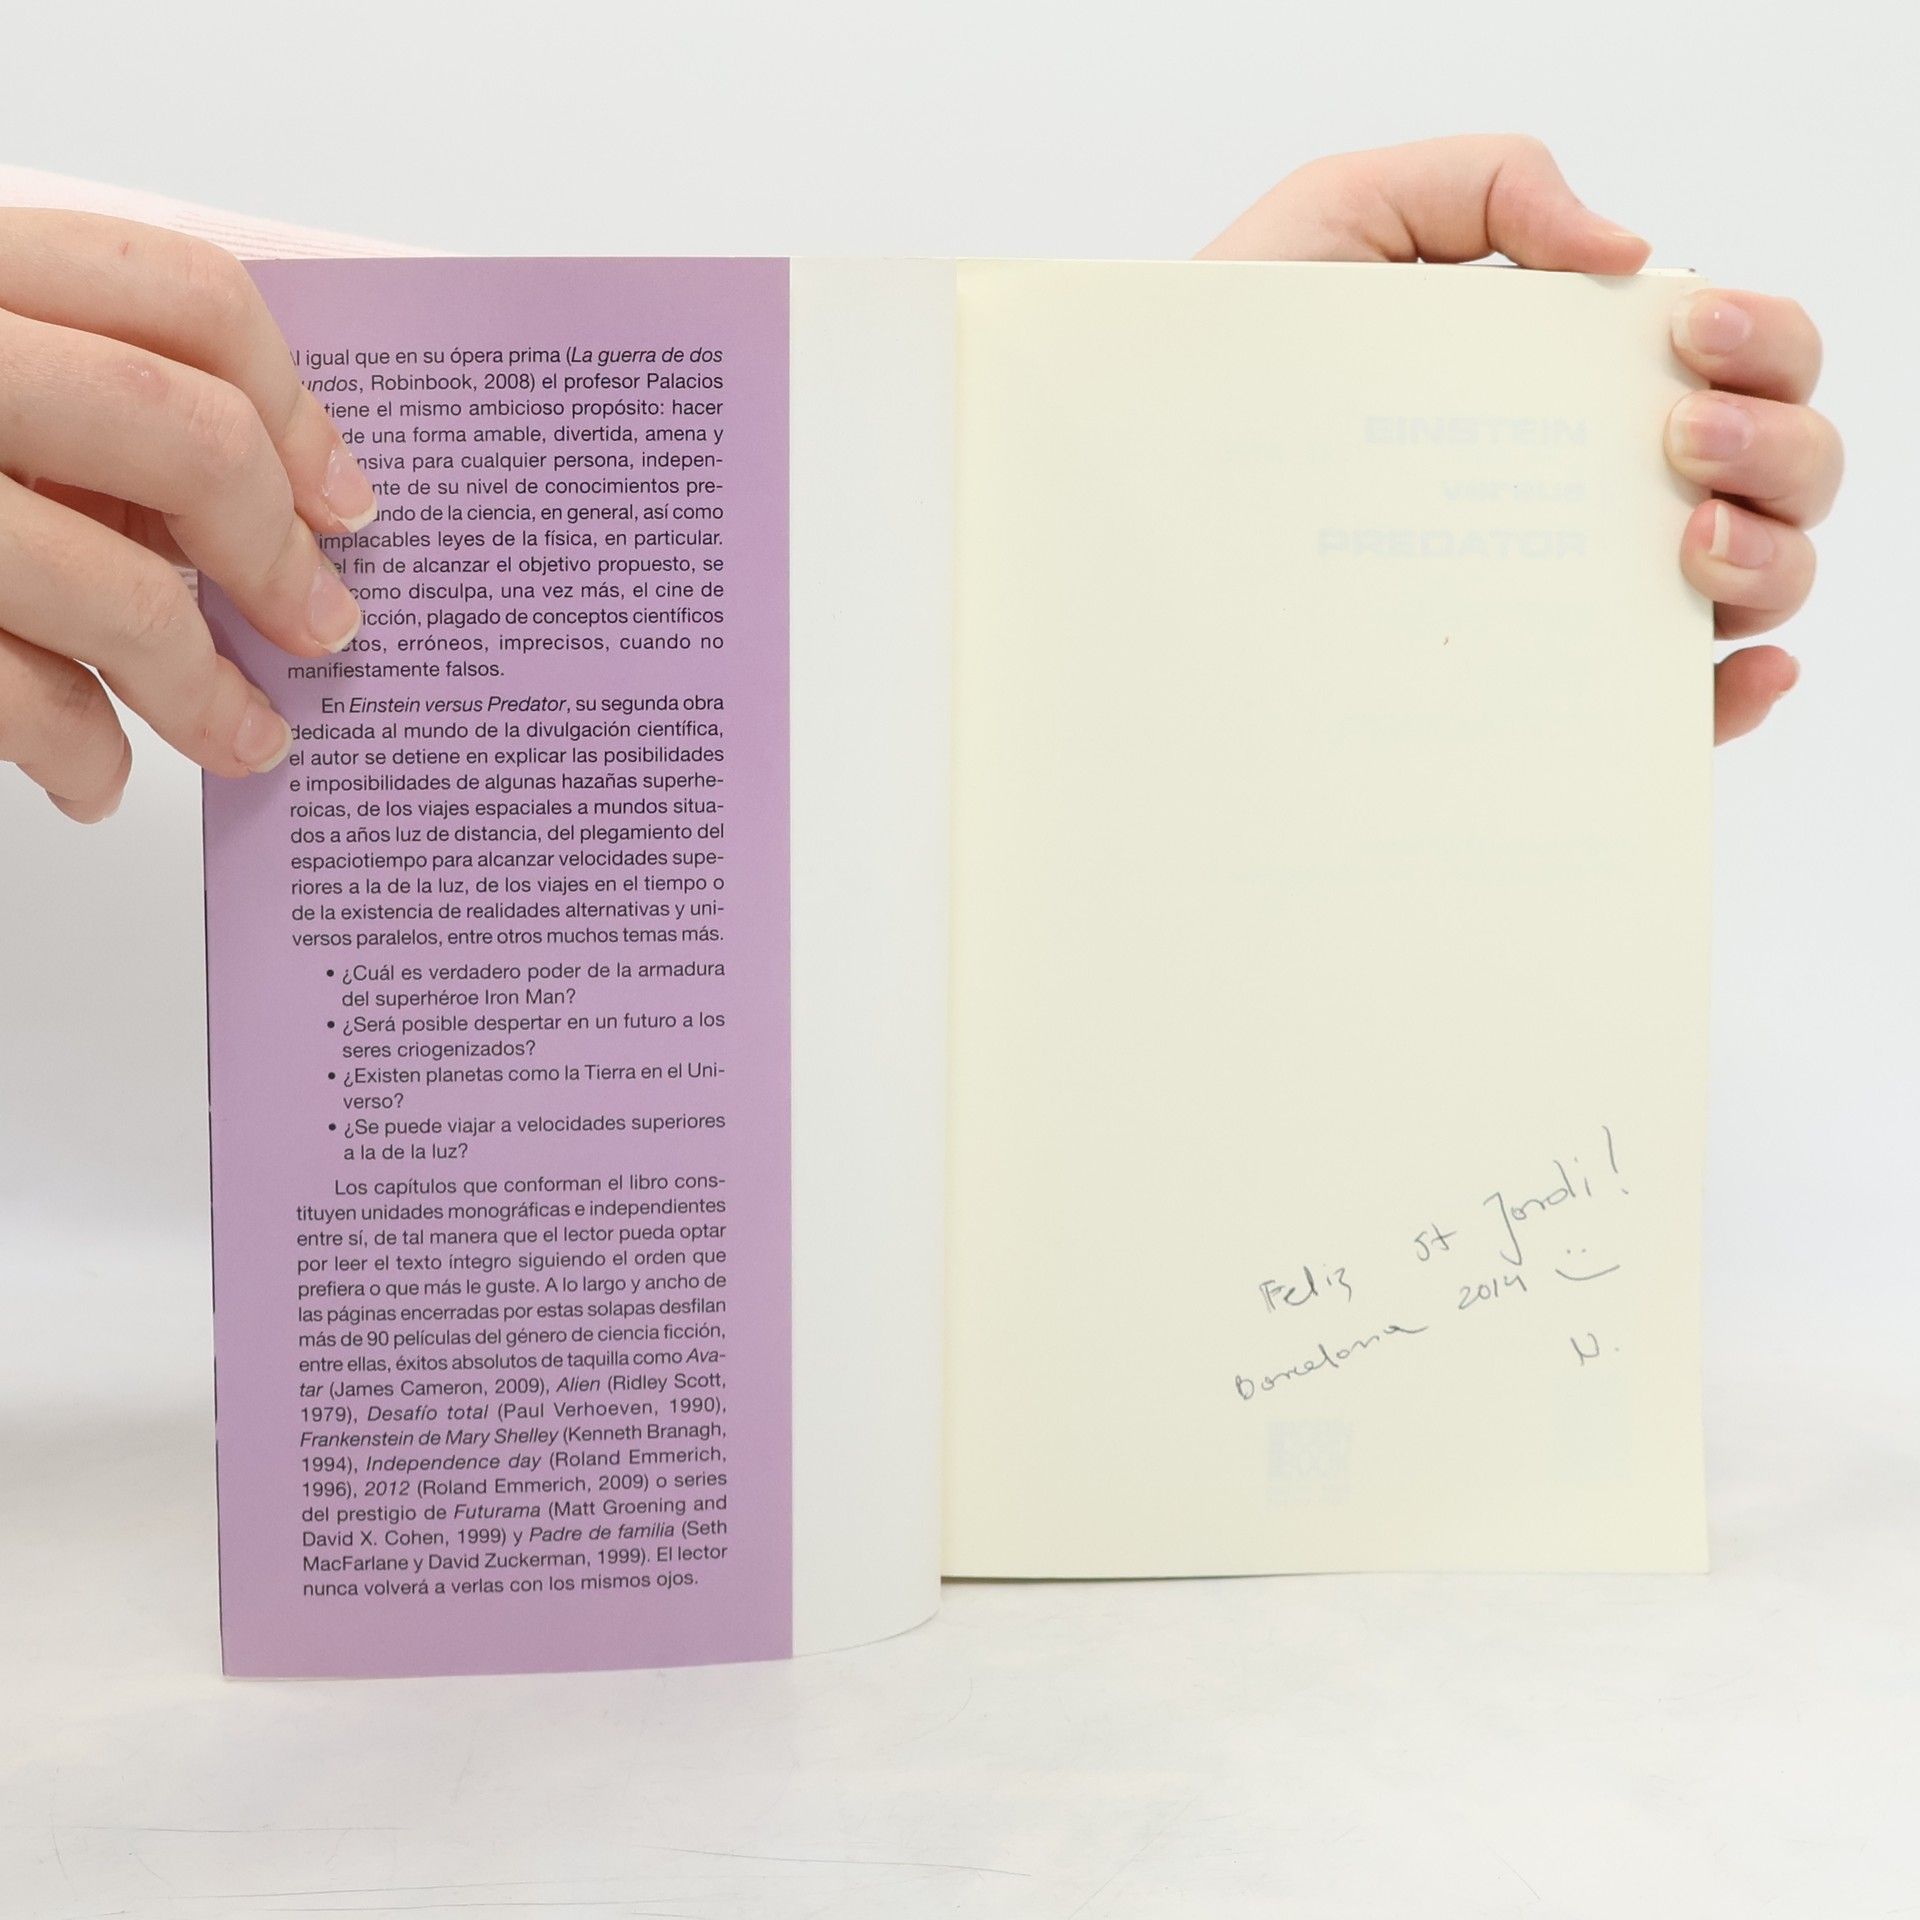 igual que en su ópera prima (La guerra de dos
Robinbook, 2008) el profesor Palacios
el mismo ambicioso propósito: hacer
de una forma amable, divertida, amena y
para cualquier persona, indepen-
de su nivel de conocimientos pre-
de la ciencia, en general, así como
implacables leyes de la física, en particular.
fin de alcanzar el objetivo propuesto, se
como disculpa, una vez más, el cine de
plagado de conceptos científicos
erróneos, imprecisos, cuando no
manifiestamente falsos.
En Einstein versus Predator, su segunda obra
dedicada al mundo de la divulgación científica,
el autor se detiene en explicar las posibilidades
e imposibilidades de algunas hazañas superhe-
roicas, de los viajes espaciales a mundos situa-
dos a años luz de distancia, del plegamiento del
espaciotiempo para alcanzar velocidades supe-
riores a la de la luz, de los viajes en el tiempo o
de la existencia de realidades alternativas y uni-
versos paralelos, entre otros muchos temas más.
• ¿Cuál es verdadero poder de la armadura
del superhéroe Iron Man?
• ¿Será posible despertar en un futuro a los
seres criogenizados?
• ¿Existen planetas como la Tierra en el Uni-
verso?
• ¿Se puede viajar a velocidades superiores
a la de la luz?
Los capítulos que conforman el libro cons-
tituyen unidades monográficas e independientes
entre sí, de tal manera que el lector pueda optar
por leer el texto íntegro siguiendo el orden que
prefiera o que más le guste. A lo largo y ancho de
las páginas encerradas por estas solapas desfilan
más de 90 películas del género de ciencia ficción,
entre ellas, éxitos absolutos de taquilla como Ava-
tar (James Cameron, 2009), Alien (Ridley Scott,
1979), Desafío total (Paul Verhoeven, 1990),
Frankenstein de Mary Shelley (Kenneth Branagh,
1994), Independence day (Roland Emmerich,
1996), 2012 (Roland Emmerich, 2009) o series
del prestigio de Futurama (Matt Groening and
David X. Cohen, 1999) y Padre de familia (Seth
MacFarlane y David Zuckerman, 1999). El lector
nunca volverá a verlas con los mismos ojos.
EINSTEIN
versus
PREDATOR
Feliz St Jordi!
Barcelona 2014
N.